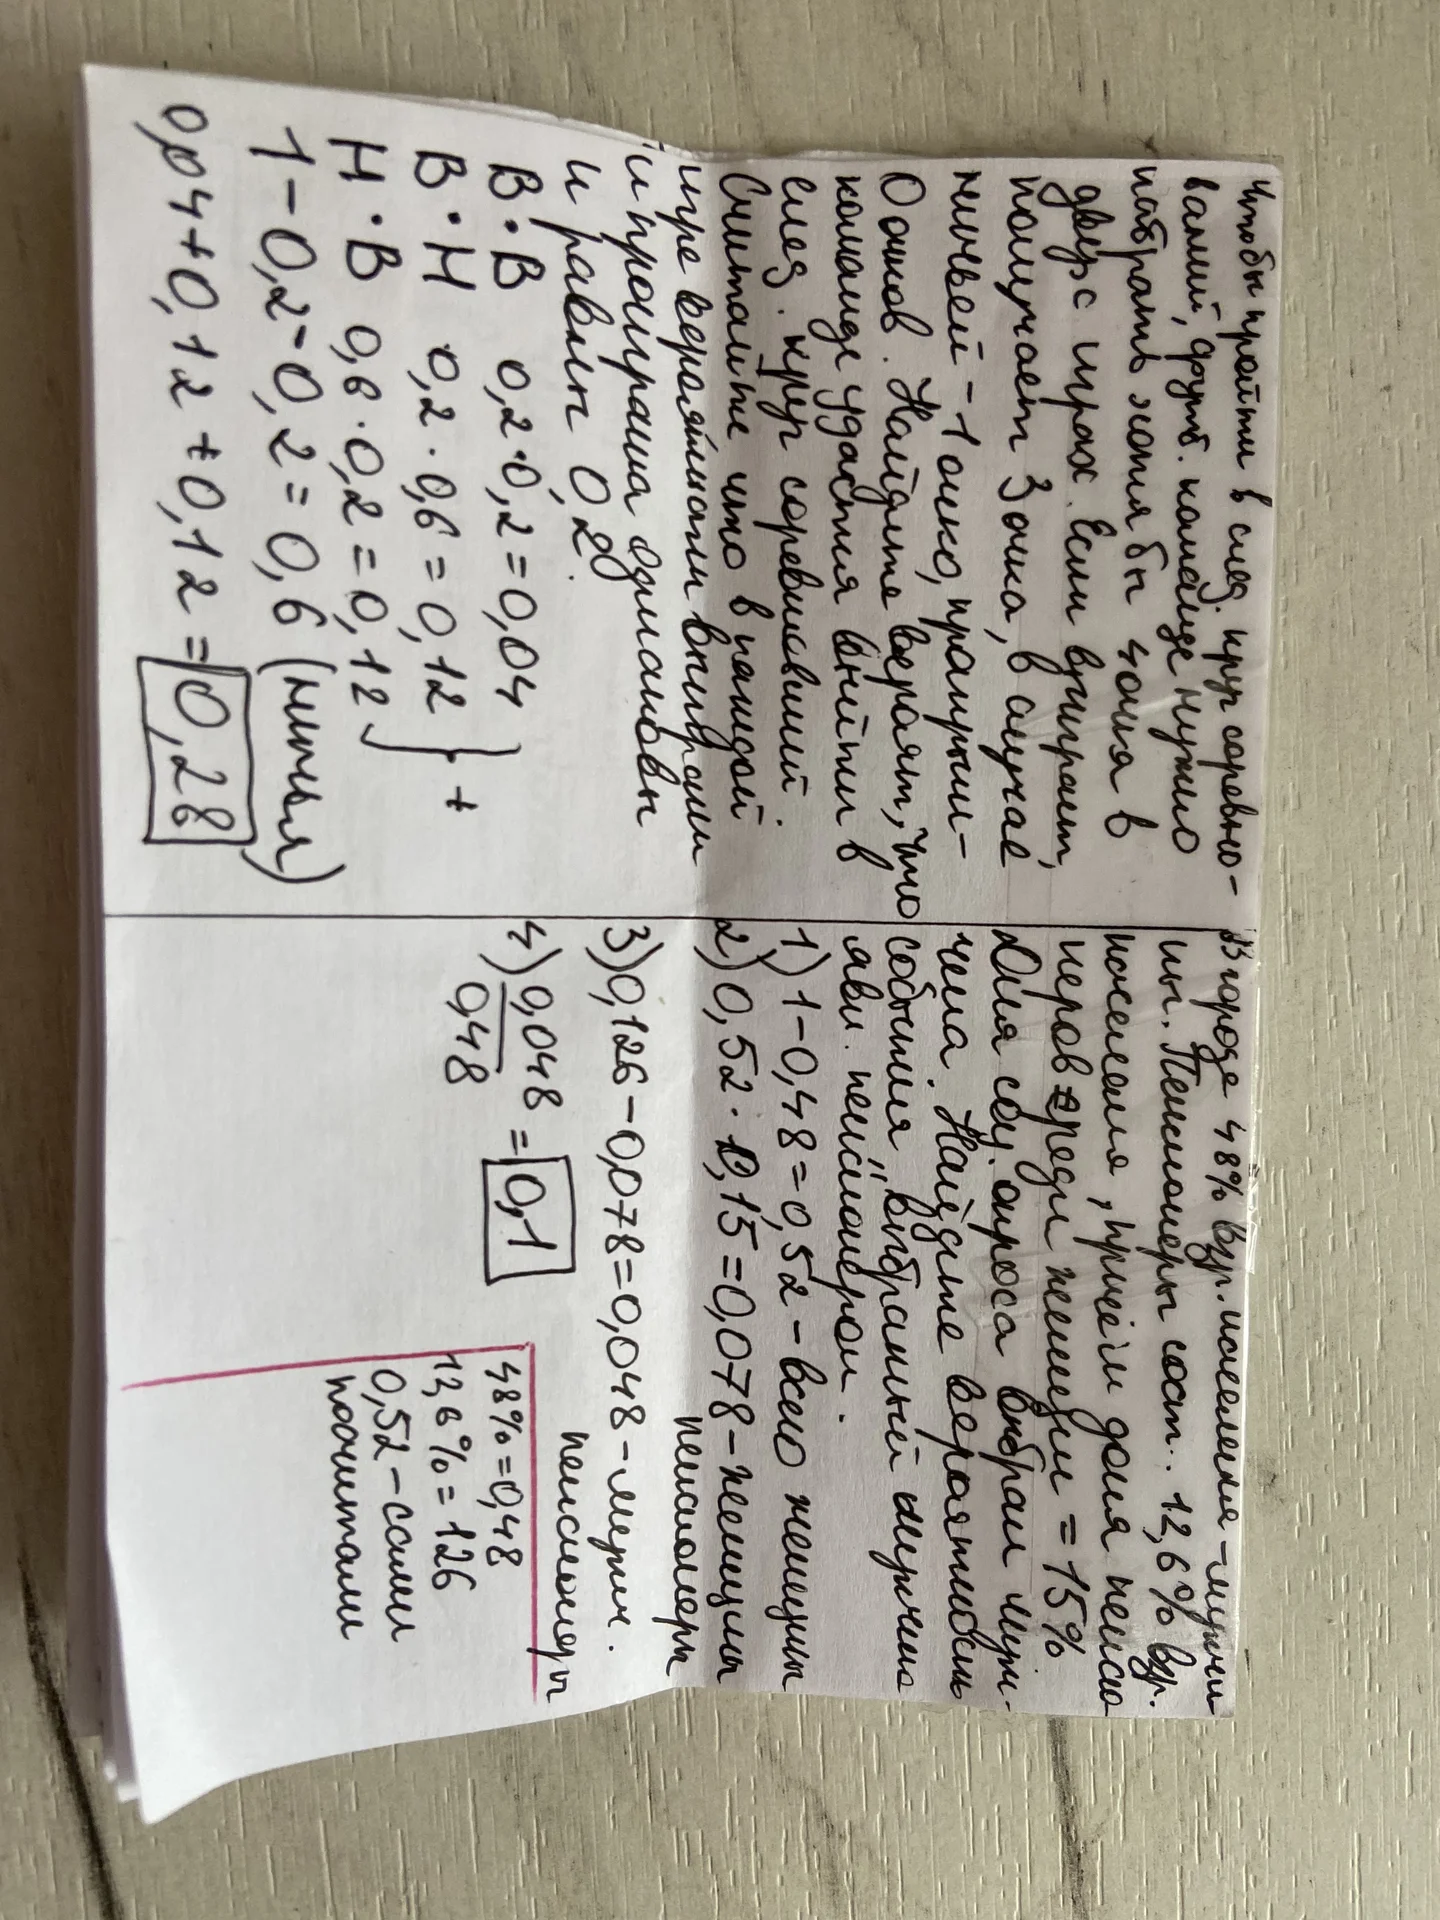 Чтобы пройти в след. круг соревно-
ваний, футб. команде нужно
набрать хотя бы 4 очка в
двух играх. Если выиграет,
получает 3 очка, в случае
ничьей - 1 очко, проигрыш -
0 очков. Найдите вероят, что
команде удастся выйти в
след. круг соревнований.
Считайте что в каждой
игре вероятности выигрыша
и проигрыша одинаковы
и равны 0,2.
В·В 0,2·0,2=0,04
В·Н 0,2·0,6=0,12 } +
Н·В 0,6·0,2=0,12
1-0,2-0,2=0,6 (ничья)
0,04+0,12+0,12=0,28
В городе 48% взр. населения - мужчи
ны. Пенсионеры сост. 12,6% взр.
населения, причём доля пенсио
неров среди женщин = 15%
Для соц. опроса выбран муж-
чина. Найдите вероятность
события "выбранный мужчина
явл. пенсионером.
1) 1-0,48=0,52 - всего женщины
2) 0,52·0,15=0,078 - женщины
пенсионеры
3) 0,126-0,078=0,048 - мужч.
пенсионеры
4) 0,048
0,48
= 0,1
48%=0,48
12,6%=126
0,52 - сами
посчитали